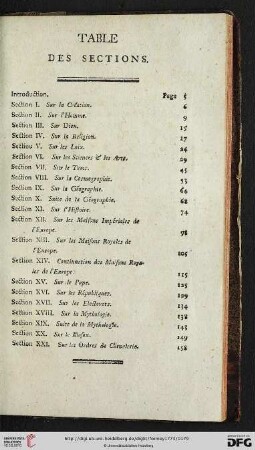 TABLE
DES SECTIONS.
Introduction. Page
Section I. Sur la Création. 6
Section II. Sur l'Homme. 9
Section III. Sur Dieu. 15
Section IV. Sur la Religion. 17
Section V. Sur les Loix. 24
Section VI. Sur les Sciences & les Arts. 29
Section VII. Sur le Tems. 45
Section VIII. Sur la Cosmographie. 53
Section IX. Sur la Géographie. 60
Section X. Suite de la Géographie. 62
Section XI. Sur l'Histoire. 74
Section XII. Sur les Maisons Impériales de
l'Europe. 98
Section XIII. Sur les Maisons Royales de
l'Europe. 105
Section XIV. Continuation des Maisons Roya-
les de l'Europe 115
Section XV. Sur le Pape. 125
Section XVI. Sur les Républiques. 129
Section XVII. Sur les Electorats. 134
Section XVIII. Sur la Mythologie. 138
Section XIX. Suite de la Mythologie. 145
Section XX. Sur le Blason. 149
Section XXI. Sur les Ordres de Chevalerie. 158